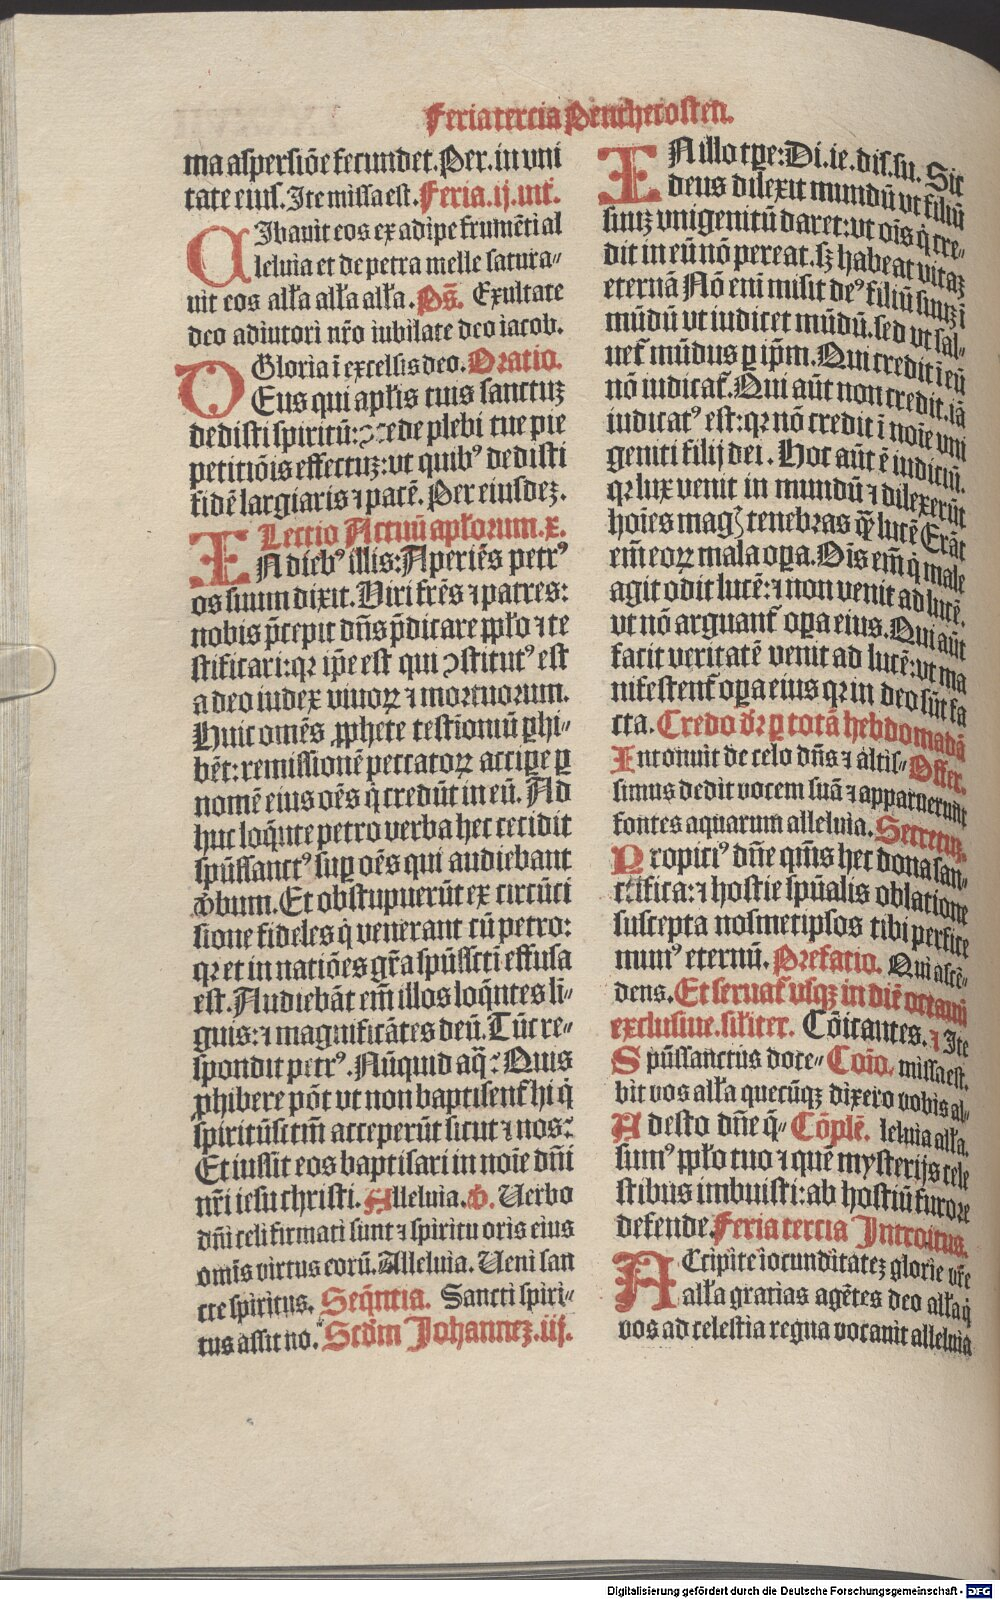 Feria tercia Penthecosten.
ma aspersiõe fecundet. Per. in vni
tate eius. Ite missa est. Feria .ij. int̃.
CIbauit eos ex adipe frumẽti al
leluia et de petra melle satura⸗
uit eos alła alła alła. Ps̃. Exultate
deo adiutori nr̃o iubilate deo iacob.
Gloria ĩ excelsis deo. Oratio.
DEus qui apłis tuis sanctuꝫ
dedisti spiritũ: ꝯcede plebi tue pie
petitiõis effectuꝫ: vt quibꝰ dedisti
fidẽ largiaris ⁊ pacẽ. Per eiusdeꝫ.
Lectio Actuũ apłorum .x.
IN diebꝰ illis: Aperiẽs petrꝰ
os suum dixit. Viri fr̃es ⁊ patres:
nobis p̃cepit dñs p̃dicare pp̱ło ⁊ te
stificari: qꝛ ip̃e est qui ꝯstitutꝰ est
a deo iudex viuoꝝ ⁊ mortuorum.
Huic omẽs ꝓphete testimoniũ ꝑhi⸗
bẽt: remissionẽ peccatoꝝ accipe ꝑ
nomẽ eius oẽs q̇ credũt in eũ. Ad
huc loq̃nte petro verba hec cecidit
spũssanctꝰ suꝑ oẽs qui audiebant
v̾bum. Et obstupuerũt ex circũci
sione fideles q̇ venerant cũ petro:
qꝛ et in natiões gr̃a spũsscti effusa
est. Audiebãt em̃ illos loq̃ntes li⸗
guis: ⁊ magnificãtes deũ. Tũc re⸗
spondit petrꝰ. Nũquid aq̃: Quis
ꝓhibere põt vt non baptisent̃ hi q̇
spiritũsctm̃ acceperũt sicut ⁊ nos:
Et iussit eos baptisari in noĩe dñi
nr̃i iesu christi. Alleluia. v̾. Verbo
dñi celi firmati sunt ⁊ spiritu oris eius
omĩs virtus eorũ. Alleluia. Veni san
cte spiritus. Seq̃ntia. Sancti spiri⸗
tus assit no. Scd̾m Johanneꝫ .iij.
IN illo tꝑe: Di. ie. dis. su. Sic
deus dilexit mundũ vt filiũ
suuꝫ vnigenitũ daret: vt oĩs q̇ cre⸗
dit in eũ nõ pereat. sꝫ habeat vitaꝫ
eternã Nõ eni misit deꝰ filiũ suuꝫ ĩ
mũdũ vt iudicet mũdũ. sed vt sal⸗
uet̃ mũdus ꝑ ip̃m. Qui credit ĩ eũ
nõ iudicat̃. Qui aũt non credit. iã
iudicatꝰ est: qꝛ nõ credit ĩ noĩe vni
geniti filij dei. Hoc aũt ẽ iudiciũ.
qꝛ lux venit in mundũ ⁊ dilexerũt
hoĩes magꝭ tenebras qᷓꝫ lucẽ Erãt
em̃ eoꝝ mala oꝑa. Oĩs em̃ q̇ male
agit odit lucẽ: ⁊ non venit ad lucẽ.
vt nõ arguant̃ oꝑa eius. Qui aũt
facit veritatẽ venit ad lucẽ: vt ma
nifestent̃ oꝑa eius qꝛ in deo sũt fa
cta. Credo dr̃ ꝑ totã hebdomadã
Intonuit de celo dñs ⁊ altis⸗ Offer.
simus dedit vocem suã ⁊ apparuerunt
fontes aquarum alleluia. Secretuꝫ.
Propiciꝰ dñe qm̃s hec dona san⸗
ctifica: ⁊ hostie spũalis oblatione
suscepta nosmetipsos tibi perfice
munꝰ eternũ. Prefatio. Qui ascẽ⸗
dens. Et seruat̃ vsqꝫ in diẽ octauũ
exclusiue. siłiter. Cõicantes. ⁊ Ite
Spũssanctus doce⸗ Coĩo. missa est.
bit vos alła quecũqꝫ dixero vobis al⸗
Adesto dñe q̃⸗ Cõplẽ. leluia alła.
sumꝰ pp̱ło tuo ⁊ quẽ mysterijs cele
stibus imbuisti: ab hostiũ furore
defende. Feria tercia Introitus.
ACcipite iocunditateꝫ glorie vr̃e
alła gratias agẽtes deo alła q̇
vos ad celestia regna vocauit alleluia
Digitalisierung gefördert durch die Deutsche Forschungsgemeinschaft - DFG